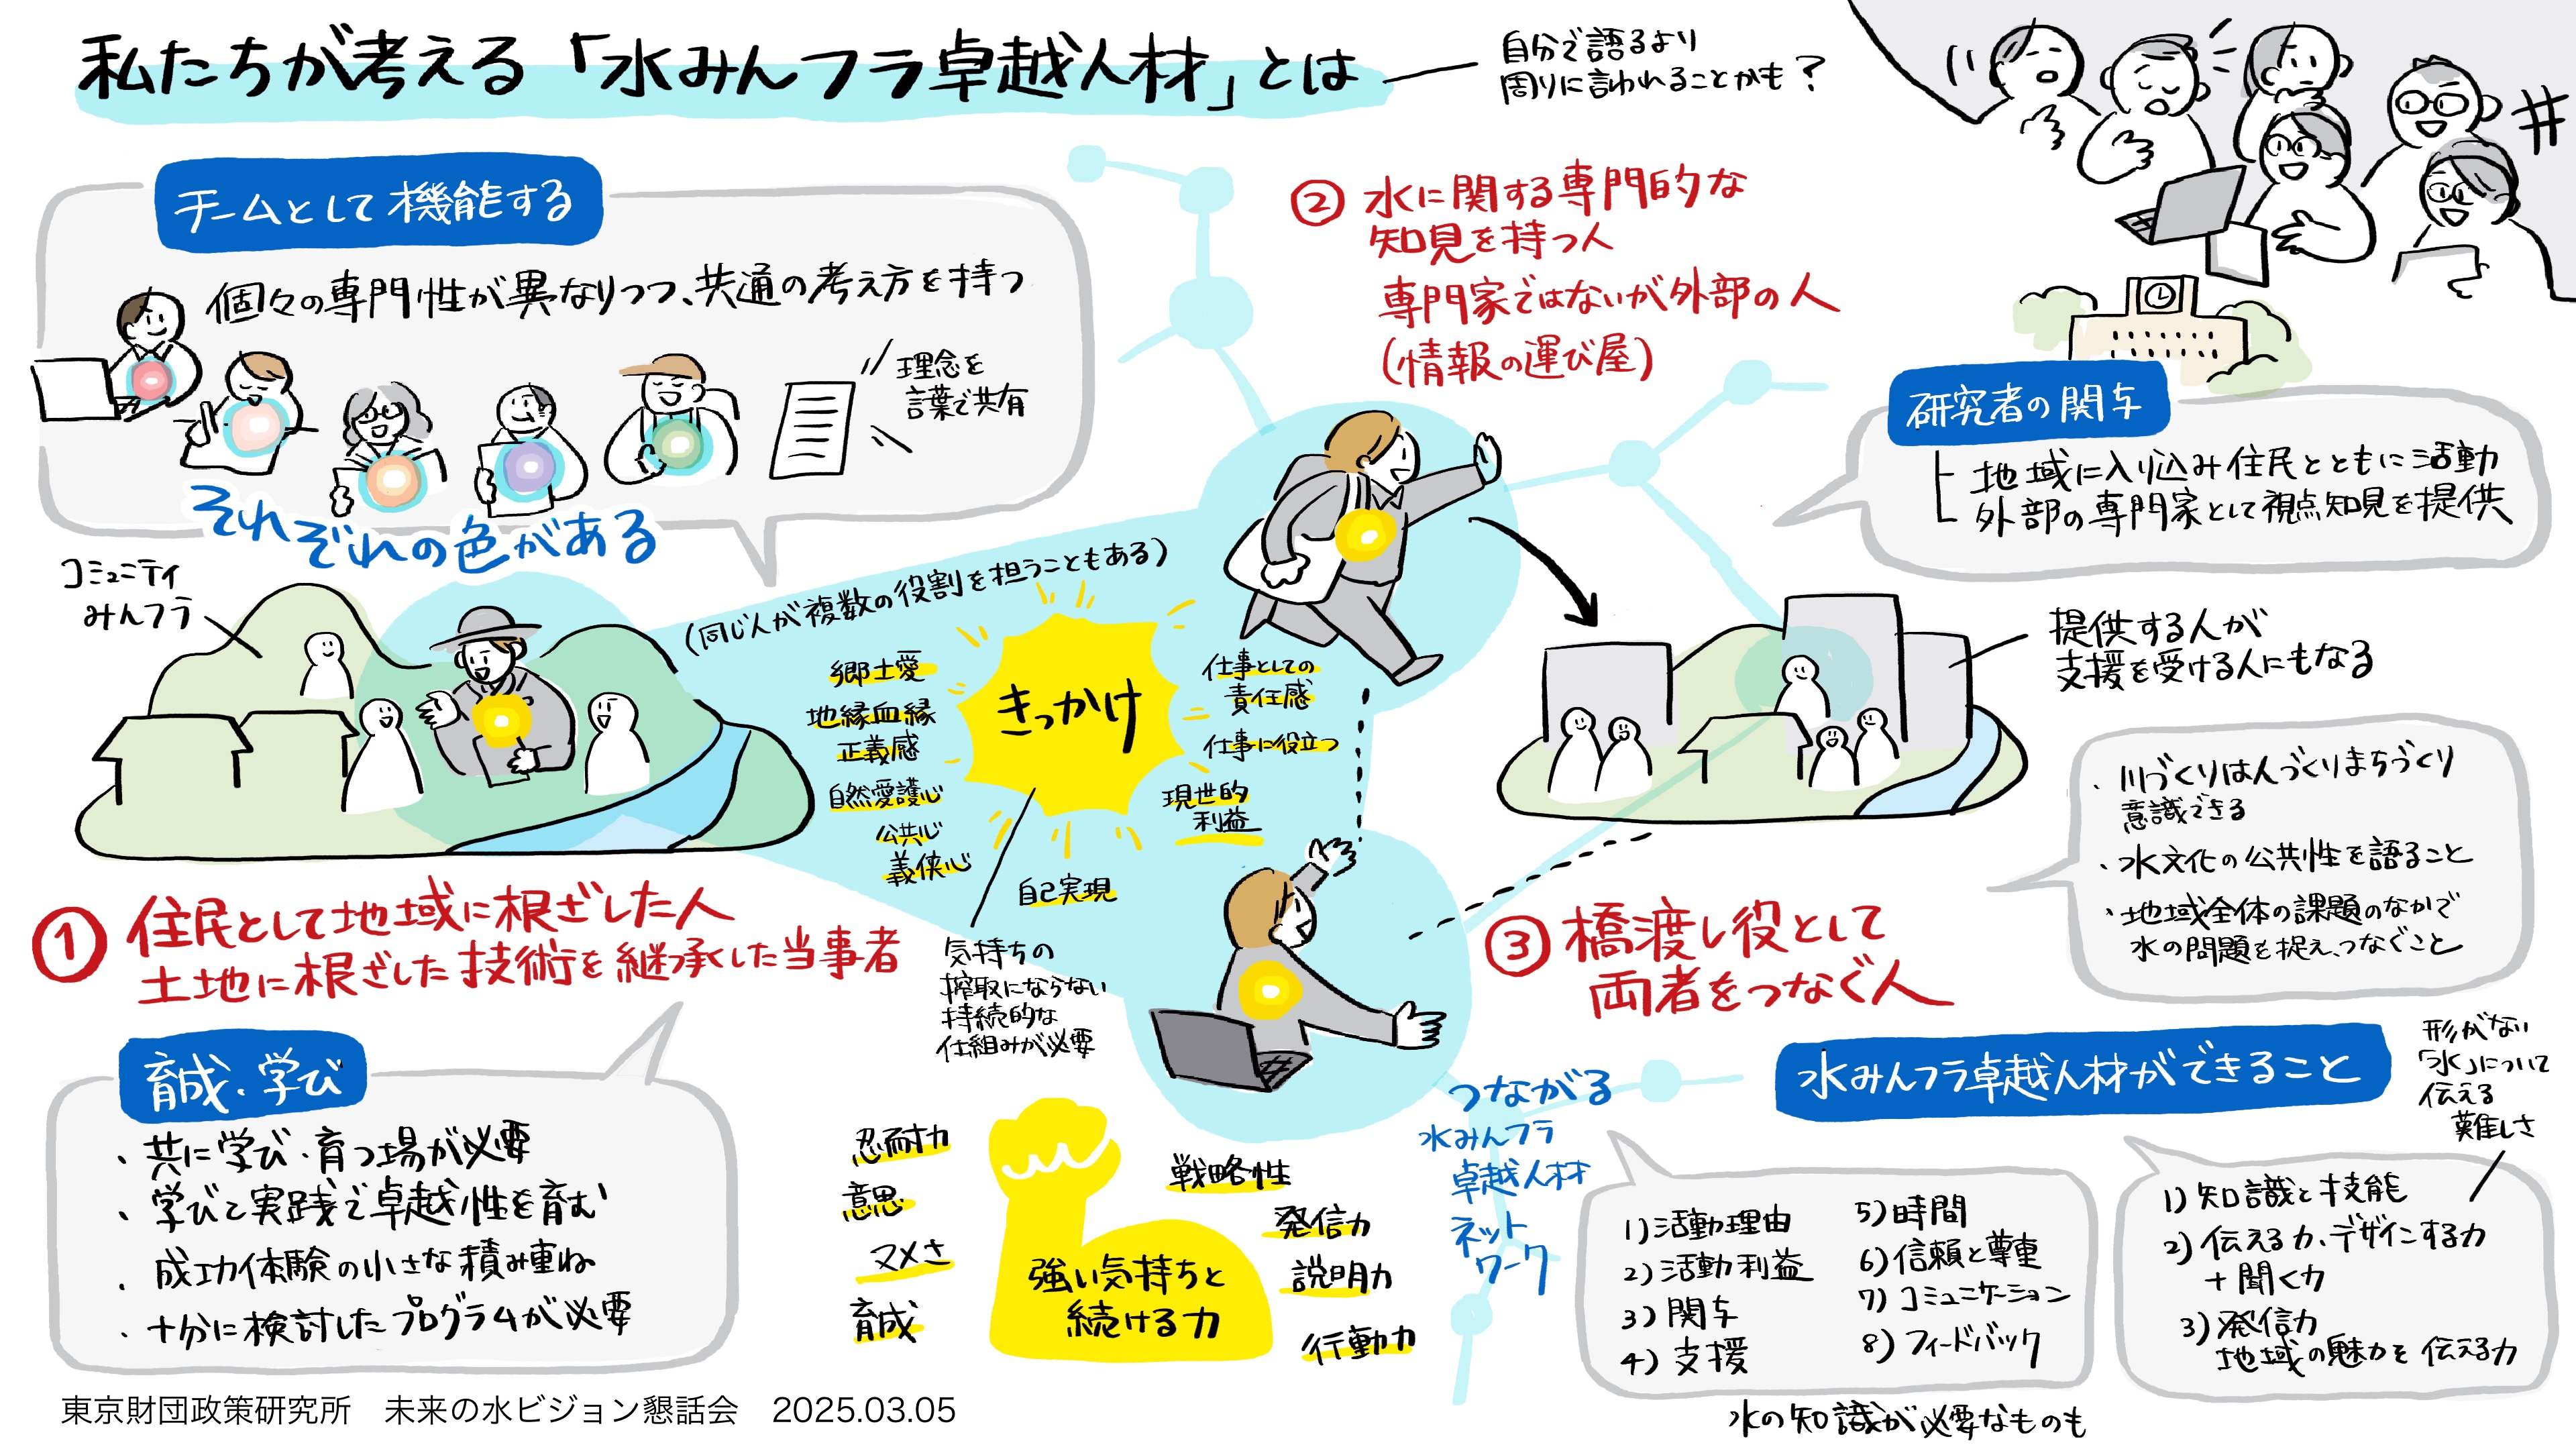 私たちが考える「水みんフラ卓越人材」とは
自分で語るより
周りに言われることかも?
チームとして機能する
個々の専門性が異なりつつ、共通の考え方を持つ
理念を
言葉で共有
それぞれの色がある
② 水に関する専門的な
知見を持つ人
専門家ではないが外部の人
(情報の運び屋)
研究者の関与
地域に入り込み住民とともに活動
外部の専門家として視点知見を提供
コミュニティ
みんフラ
(同じ人が複数の役割を担うこともある)
きっかけ
郷土愛
地縁血縁
正義感
自然愛護心
公共心
義侠心
自己実現
仕事としての
責任感
仕事に役立つ
現世的
利益
気持ちの
搾取にならない
持続的な
仕組みが必要
提供する人が
支援を受ける人にもなる
・川づくりは人づくりまちづくり
意識できる
・水文化の公共性を語ること
・地域全体の課題のなかで
水の問題を捉え、つなぐこと
① 住民として地域に根ざした人
土地に根ざした技術を継承した当事者
③ 橋渡し役として
両者をつなぐ人
育成・学び
・共に学び・育つ場が必要
・学びと実践で卓越性を育む
・成功体験の小さな積み重ね
・十分に検討したプログラムが必要
忍耐力
意思
マメさ
育成
強い気持ちと
続ける力
戦略性
発信力
説明力
行動力
つながる
水みんフラ
卓越人材
ネット
ワーク
水みんフラ卓越人材ができること
形がない
「水」について
伝える
難しさ
1)活動理由
2)活動利益
3)関与
4)支援
5)時間
6)信頼と尊重
7)コミュニケーション
8)フィードバック
水の知識が必要なものも
1)知識と技能
2)伝える力、デザインする力
+聞く力
3)発信力
地域の魅力を伝える力
東京財団政策研究所 未来の水ビジョン懇話会 2025.03.05